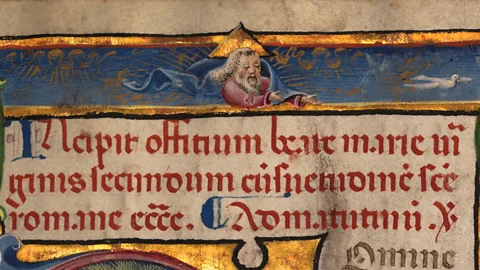 Incipit offitium beate marie vir
ginis secundum cūsuetudinē scē
romane ecce. ¶ Ad matutinū. ℣
Domine